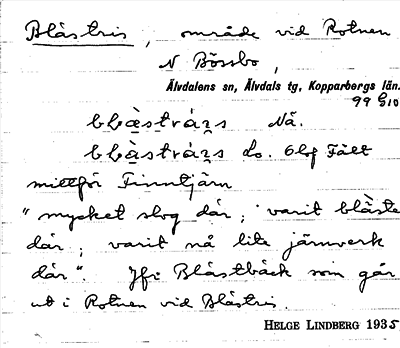 Blästris, område vid Rotnen
N Bössbo,
Älvdalens sn, Älvdals tg, Kopparbergs län.
99 G10
blæstrás Nä.
blæstrás Lo. Olof Fält
mittför Finntjärn
"mycket slog där; varit bläste
där; varit nå lite järnverk
där". Jfr Blästbäck som går
ut i Rotnen vid Blästris.
HELGE LINDBERG 1935